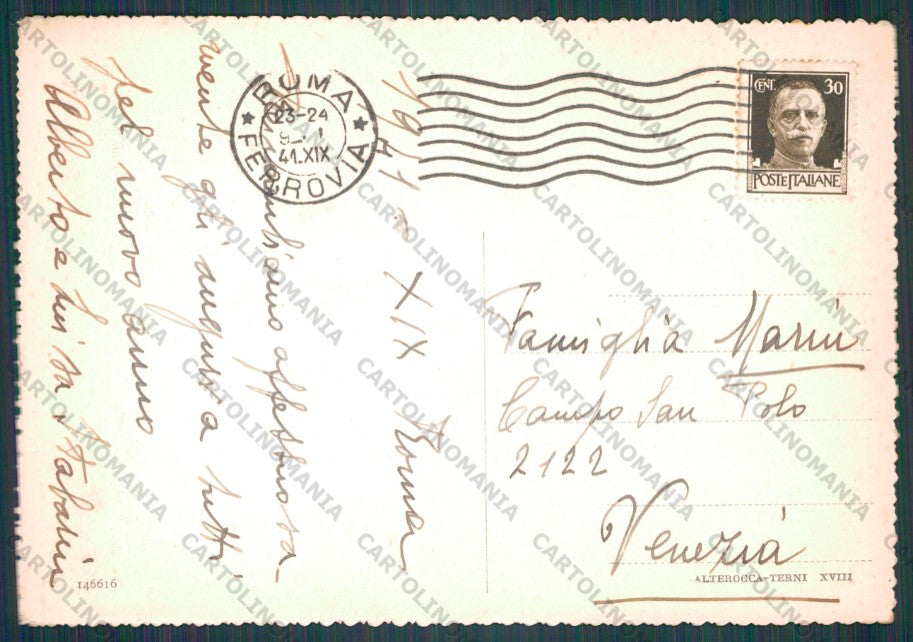 1941 - XIX Roma
Ricambiamo affettuosa-
mente gli auguri a tutti
pel nuovo anno
Alberto e Luisa Stabalin
ROMA
FERROVIA
23-24
41.XIX
A
CENT. 30
POSTE ITALIANE
Famiglia Marin
Campo San Polo
2122
Venezia
146616
ALTEROCCA-TERNI XVIII
CARTOLINOMANIA